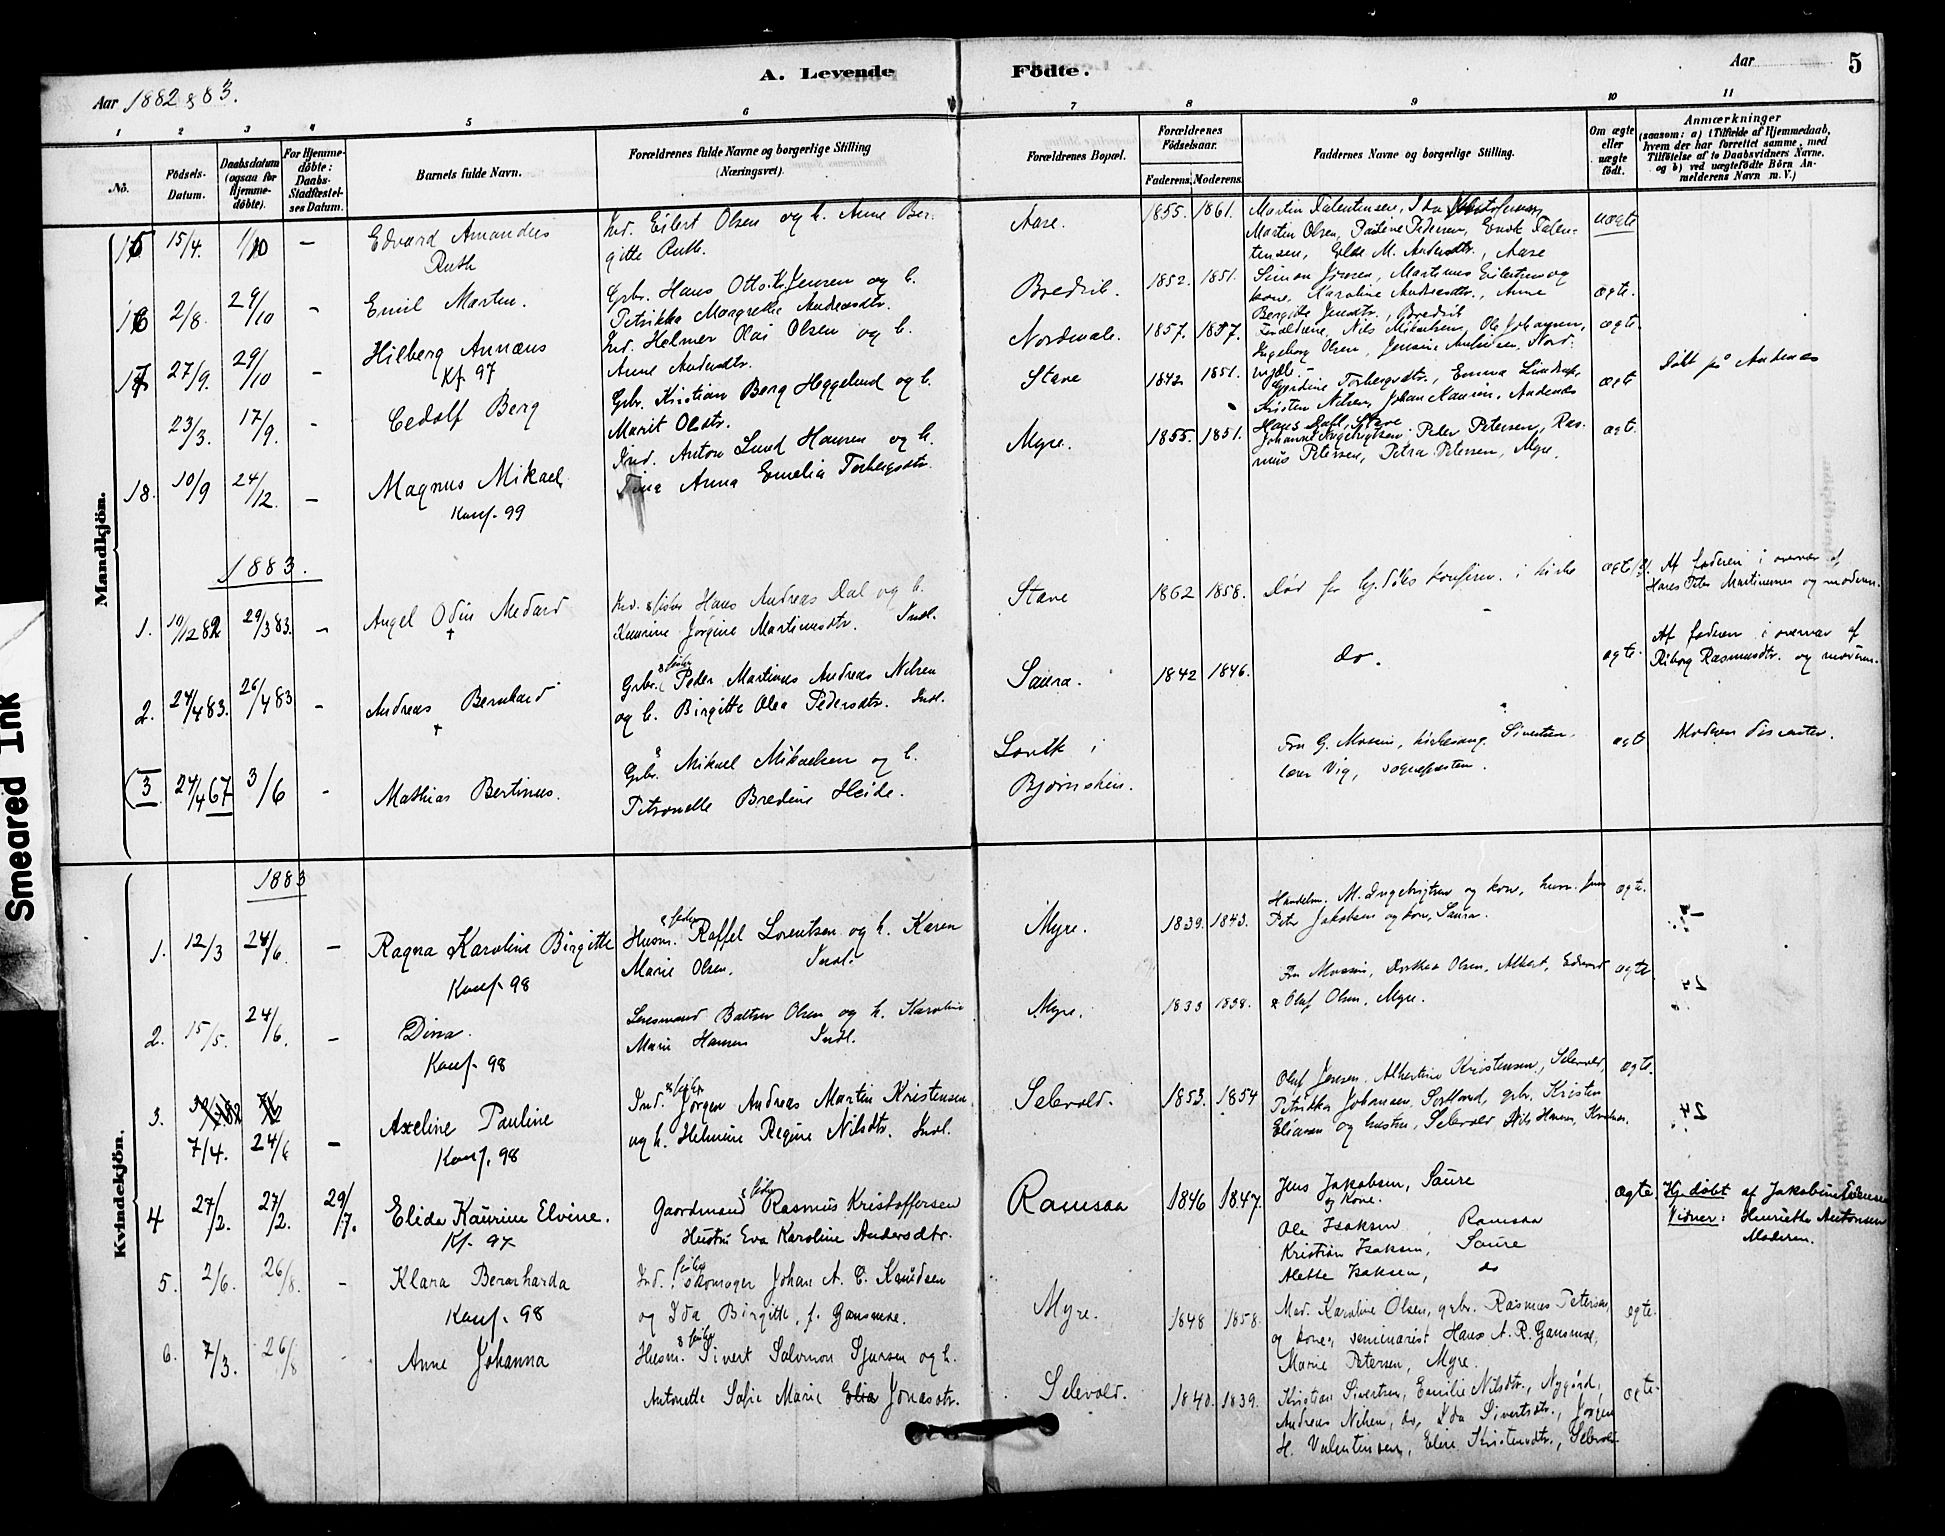 Aar 1882 & 83.
A. Levende Födte.
Aar 5
1 2 3 4 5 6 7 8 9 10 11
No.
Födsels-Datum.
Daabsdatum (ogsaa for Hjemme-döbte).
For Hjemme-döbte: Daabs-Stadfæstel-ses Datum.
Barnets fulde Navn.
Forældrenes fulde Navne og borgerlige Stilling (Næringsvei).
Forældrenes Bopæl.
Forældrenes Födselsaar.
Faderens. Moderens.
Faddernes Navne og borgerlige Stilling.
Om ægte eller uægte födt.
Anmærkninger
(saasom: a) i Tilfælde af Hjemmedaab, hvem der har forrettet samme, med Tilföielse af to Daabsvidners Navne, og b) ved uægtefödte Börn An-melderens Navn m. V.)
Mandkjön.
15 15/4. 1/10 — Edvard Amandus Ruth
Ind. Eilert Olsen og h. Anne Ber-
gitte Ruth.
Aase. 1855. 1861.
Martin Olsen, Pauline Pedersen,
uægte
16 2/8. 29/10 - Emil Marten.
Gbr. Hans Otto K. Jensen og h.
Petrikka Margrethe Andreasdtr.
Bredvik. 1852. 1851.
Simon Jensen, Martinus Eilertsen og
kone, Karoline Andreasdtr., Anne
Bergitte Jensdtr., Bredvik
ægte.
17 27/9. 29/10 - Hilberg Annæus
Kf 97
Ind. Helmer Olai Olsen og h.
Anne Andersdtr.
Nordmæle. 1857. 1857.
Nils Mikalsen, Ole Johansen,
Ingeborg Olsen,
ægte.
23/3. 17/9. - Cedolf Berg
Gbr. Kristian Berg Heggelund og h.
Marit Olsdtr.
Stave 1842 1851.
Torbergsdtr., Emma
Kristen Nilsen, Johan Hansen, Andenæs
Hans Dahl, Stave
ægte
Døbt på Andenæs
18. 10/9 24/12. — Magnus Mikael,
Konf. 99
Ind. Anton Lund Hansen og h.
Anna Emelia Torbergsdtr.
Myre. 1855. 1851.
Peder Petersen, Ras-
mus Petersen, Petra Petersen, Myre.
ægt.
1883.
1. 10/12 82 29/3 83. - Angel Odin Medard
+
Ind. & fisker Hans Andreas Dal og h.
Kaurine Jørgine Martinusdtr. Indl.
Stave 1862 1858.
Død før hj.døbs konfirm. i kirke
ægte
Af faderen i overvær af
Hans Peter Martinussen og moderen.
2. 24/4 83. 26/4 83 - Andreas Bernhard
+
Grbr. & fisker Peder Martinus Andreas Nilsen
og h. Birgitte Olea Pedersdtr. Indl.
Saura. 1842 1846.
do.
ægte.
Af faderen i overvær af
Riborg Rasmusdtr. og moderen.
(3 24/4 67 3/6 - Mathias Bertinus.
Grbr. Mikael Mikaelsen og h.
Petronelle Bredine Heide.
i
Bjørnskin.
Fru G. Mossin, kirkesang. Sivertsen,
lærer Vig, sognepresten.
ægt
Moderen dissenter.
Kvindekjön.
1883
1. 12/3 24/6. — Ragna Karoline Birgitte
Konf. 98
Husm. & fisker Raffel Lorentsen og h. Karen
Marie Olsen. Indl.
Myre. 1839. 1843.
Handelsm. M. Ingebrigtsen og kone, husm. Jens
Peter Jakobsen og kone, Saura.
ægte.
2. 15/5. 24/6. - Dina.
Konf. 98
Lensmand Baltzer Olsen og h. Karoline
Marie Hansen Indl.
Myre. 1833 1838.
Fru Mossin, Dorthea Olsen, Albert, Edvard
& Oluf Olsen, Myre.
ægte
3. 7/4. 24/6 - Axeline Pauline
Konf. 98
Ind. & fisker Jørgen Andreas Martin Kristensen
og h. Helmine Regine Nilsdtr. Indl.
Selevold. 1853. 1854
Oluf Jensen, Albertine Kristensen, Selevold,
Petrikka Johansen, Sortland, grbr. Kristen
Eliasen og hustru, Selevold, Nils Hansen,
ægte.
4 27/2. 27/2. 29/7. Elida Kaurine Elvine.
Kf. 97
Gaardmand & fisker Rasmus Kristoffersen
Hustru Eva Karoline Andersdtr.
Ramsaa 1846 1847.
Jens Jakobsen, Saure
og Kone.
Ole Isaksen, Ramsaa
Kristian Isaksen, Saure
Alette Isaksen, do
ægte
Hj. døbt af Jakobine Edensen
Vidner: Henriette Antonsen
Moderen.
5. 2/6. 26/8. - Klara Bernharda
Konf. 98
Ind. fisker skomager Johan A. C. Knudsen
og Ida Birgitte, f. Gansmoe.
Myre. 1848 1858.
Mad. Karoline Olsen, grbr. Rasmus Petersen
og kone, seminarist Hans A. R. Gansmoe,
Marie Petersen, Myre.
ægte.
6. 7/3. 26/8 - Anne Johanna
Husm. & fisker Sivert Salomon Sjursen og h.
Antonette Sofie Marie Elia Jonasdtr.
Selevold. 1840. 1839.
Kristian Sivertsen, Emilie Nilsdtr., Nygård,
Andreas Nilsen, do, Ida Sivertsdtr., Jørgen
H. Valentinsen, Elise Kristensdtr., Selevold
ægte.
Smeared Ink